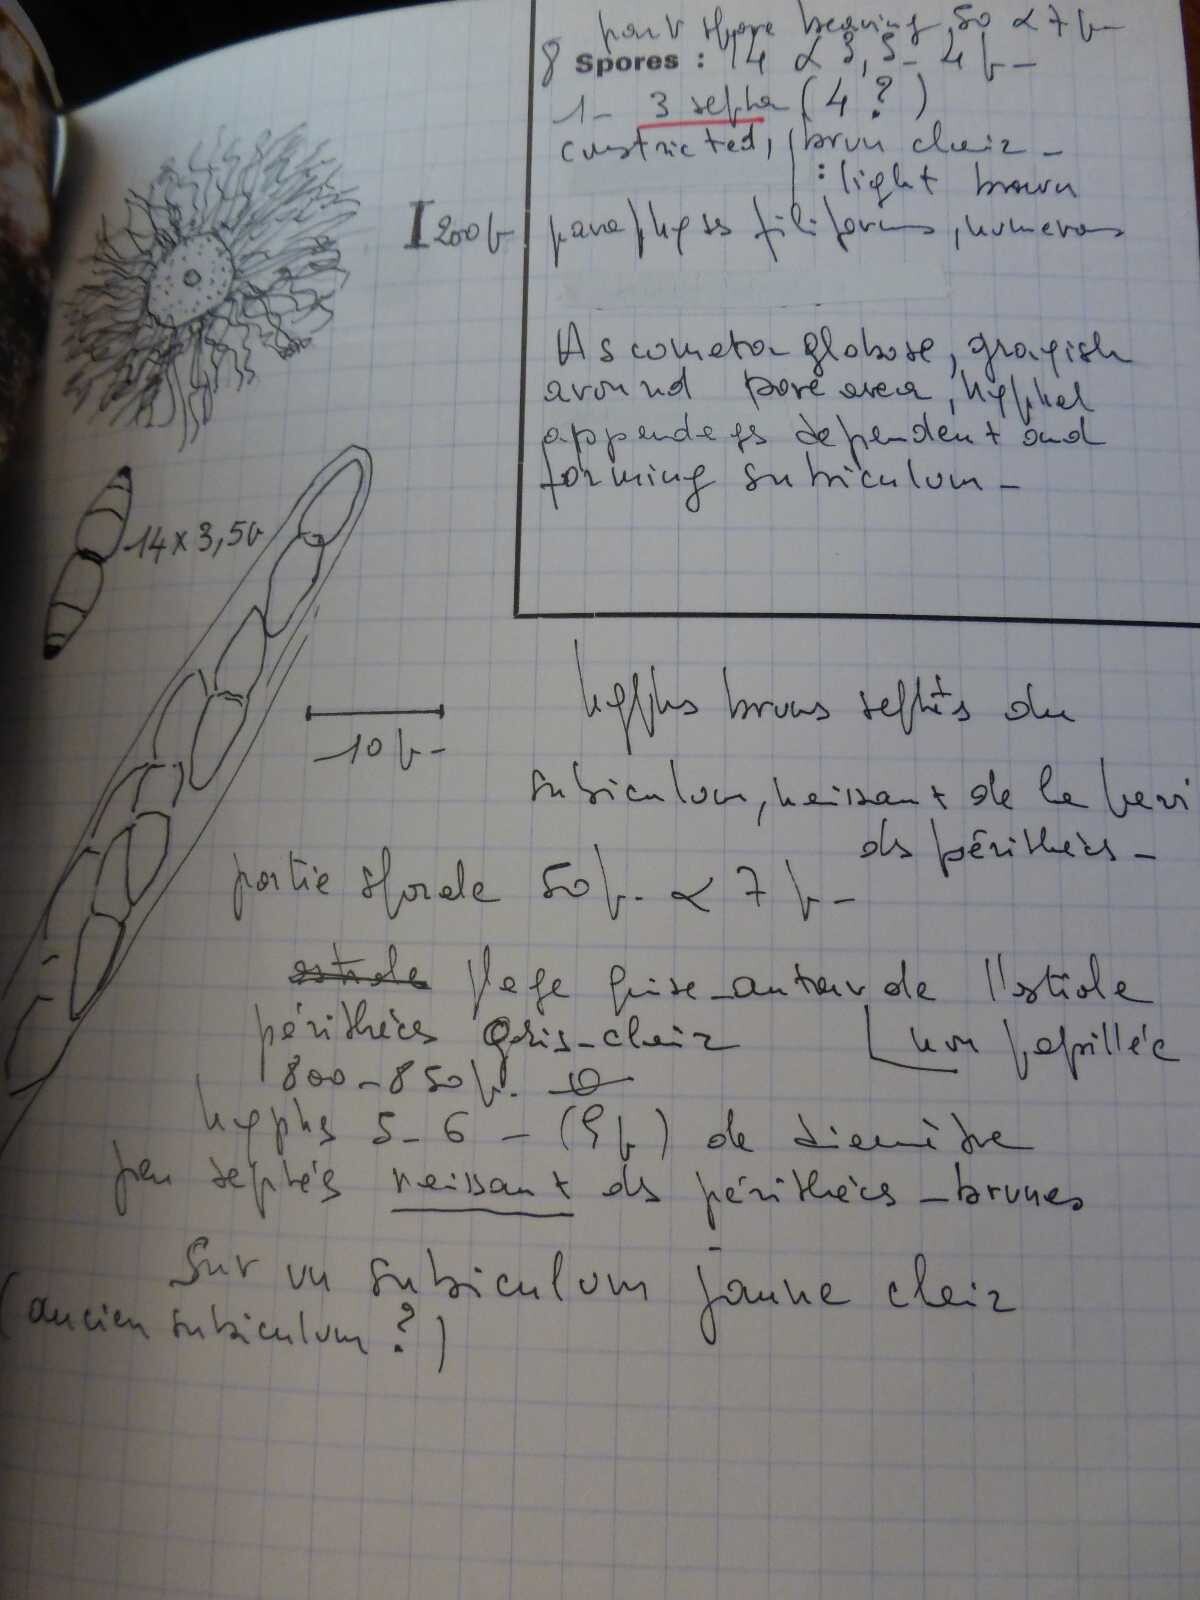 part spore bearing 50 x 7 µ
8 Spores : 14 x 3,5-4 µ -
1- 3 septa (4 ?)
constricted, brun clair -
: light brown
I 200 µ
paraphyses filiforms, numerous
Ascomata globose, grayish
around pore area, hyphal
appendages dependent and
forming subiculum -
14 x 3,5 µ
10 µ -
hyphes brunes septés du
subiculum, naissant de la
des périthèces -
partie sporale 50 µ. x 7 µ -
ostiole plage grise autour de l'ostiole
périthèces gris-clair
non papillée
800-850 µ.
hyphes 5-6 - (9 µ) de diamètre
peu septés naissant des périthèces - brunes
Sur un subiculum jaune clair
(ancien subiculum ?)